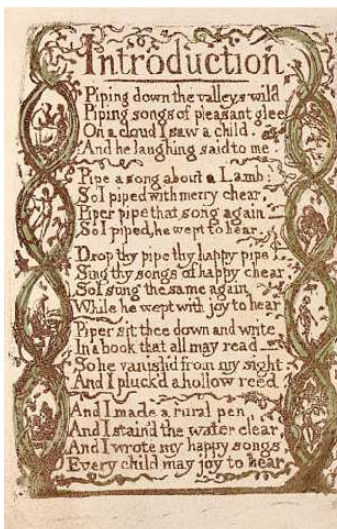 Introduction
Piping down the valleys wild
Piping songs of pleasant glee
On a cloud I saw a child.
And he laughing said to me.
Pipe a song about a Lamb:
So I piped with merry chear,
Piper pipe that song again—
So I piped, he wept to hear.
Drop thy pipe thy happy pipe
Sing thy songs of happy chear,
So I sung the same again
While he wept with joy to hear
Piper sit thee down and write
In a book that all may read—
So he vanish'd from my sight.
And I pluck'd a hollow reed.
And I made a rural pen,
And I stain'd the water clear,
And I wrote my happy songs
Every child may joy to hear